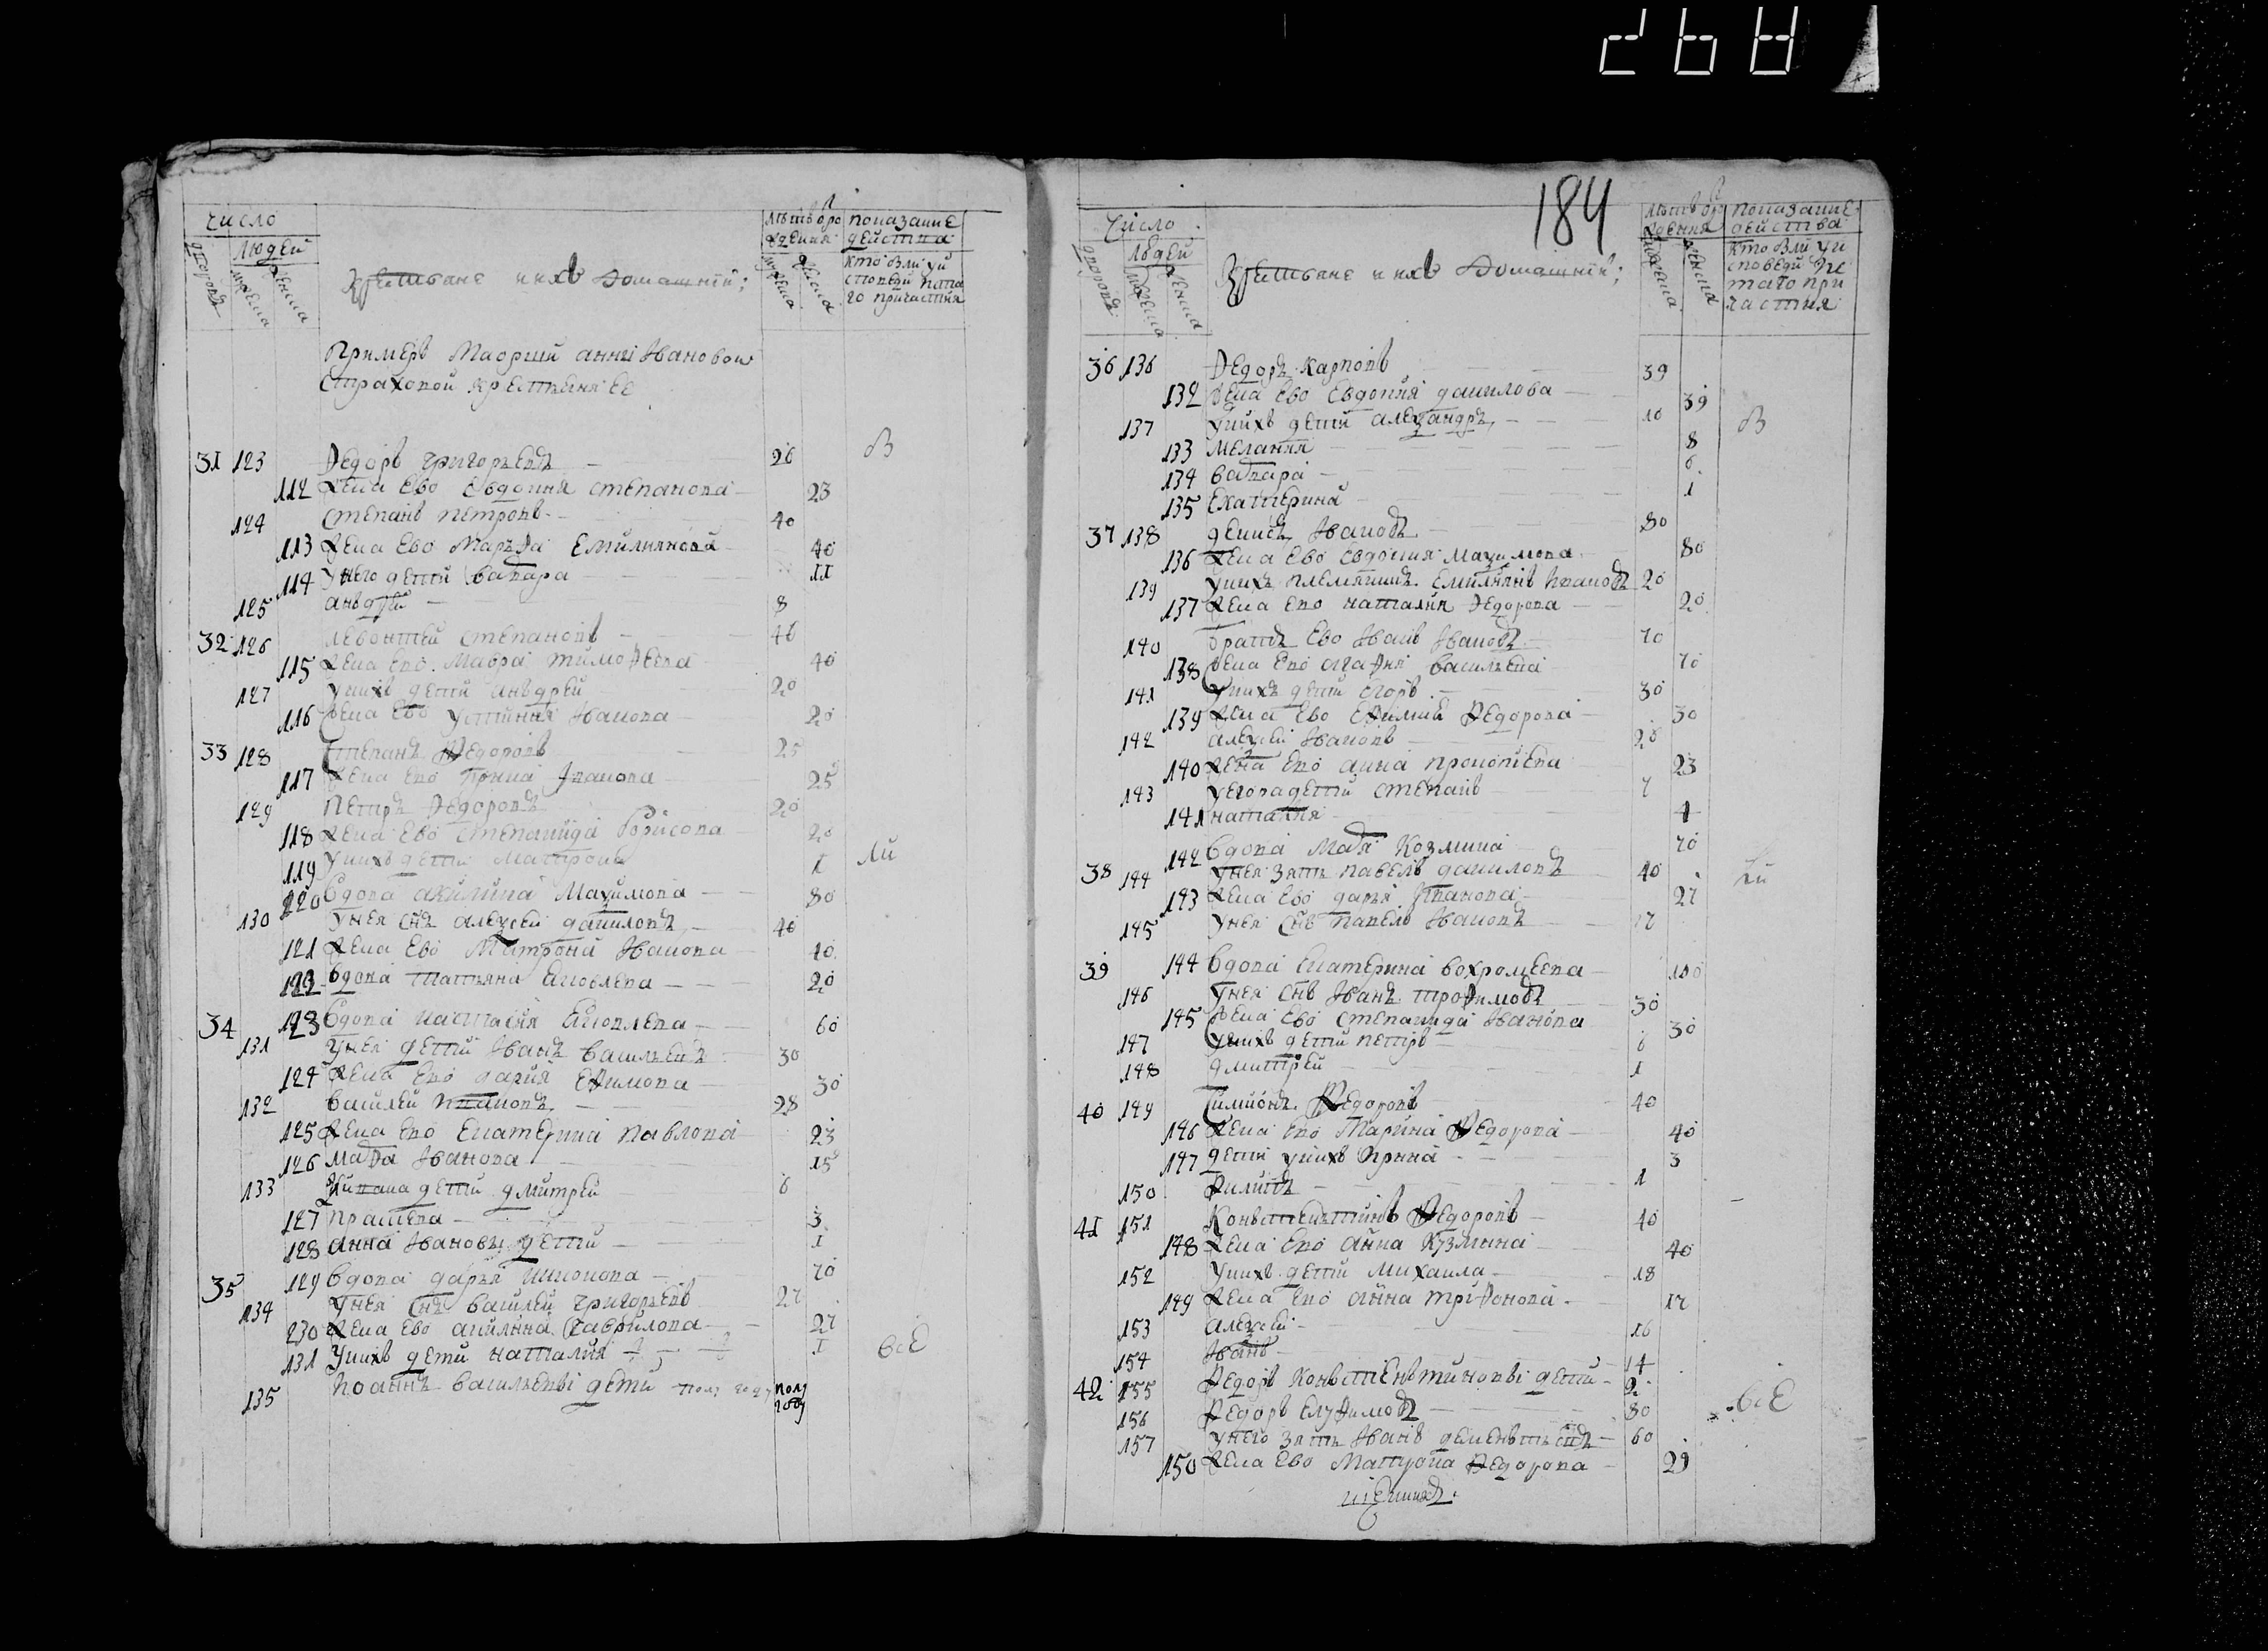 268
число
людей
дворовъ
мужска
женска
Крестьяне и ихъ домашнїи:
лѣтъ от рождения
мужска
женска
показание действа
кто был у исповеди и свята
го причастия
Примеръ Маорши анны Ивановои
Страховой крестьяня ее
31 123 Федоръ григорьевъ 26 в
112 Жена ево Евдокия степанова 23
124 степанъ петровъ 40
113 Жена Ево Марѳа Емилиянова 40
114 у него дети вавара 11
125 анъдрѣй 8
32 126 левонтей степановъ 46
115 Жена ево Мавра тимоѳеева 40
127 у нихъ дети анъдрей 20
116 Жена Ево устиния Иванова 20
33 128 степанъ Федоровъ 25
117 Жена ево Ирина Иванова 25
129 Петръ Федоровъ 20
118 Жена Ево степанида борисова 20
119 у нихъ дети матрона 1 ли
120 вдова акилина Маѯимова 80
130 у нея снъ алеѯей даниловъ 40
121 Жена Ево Матрона Иванова 40
122 вдова татьяна яковлева 20
34 123 вдова настасия яковлева 60
131 у нея дети Иванъ васильевъ 30
124 Жена ево дария Еѳимова 30
132 василей Ивановъ 28
125 Жена ево Екатерина павлова 23
126 Маѳа Иванова 15
133 дети дмитрей 6
127 прасковя 3
128 анна Ивановы дети 1
35 129 вдова дарья 70
134 у нея снъ василей григорьевъ 27
130 Жена Ево акилина гаврилова 27
131 у нихъ дети наталия 1 все
135 Иоаннъ васильевы дети полу году полу году
184
число
людей
дворовъ
мужска
женска
Крестьяне и ихъ домашнїи:
лѣтъ от рождения
мужска
женска
показание
действа
кто был у и
споведи и свя
таго при
частия
36 136 Федоръ карповъ 39
132 Жена Ево Евдокия данилова 39
137 у нихъ дети алеѯандръ 10 в
133 мелания 8
134 вавара 6
135 Екатерина 1
37 138 денисъ Ивановъ 80
136 Жена Ево Евдокия маѯимова 80
139 у нихъ племянникъ Емилиянъ Ивановъ 20
137 Жена ево наталия Федорова 20
140 братъ Ево Иванъ Ивановъ 70
138 Жена ево агаѳия васильева 70
141 у нихъ дети Егоръ 30
139 Жена Ево Еѳимия Федорова 30
142 алеѯей Ивановъ 28
140 Жена ево анна прокопиева 23
143 у егора дети степанъ 7
141 наталия 1
142 вдова Маѳа Козмина 70
38 144 у нея зять павелъ даниловъ 40 ли
143 Жена Ево дарья Иванова 27
145 у нея снъ павелъ Ивановъ 17
39 144 вдова Екатерина вохромеева 100
146 у нея снъ Иванъ троѳимовъ 30
145 Жена Ево степанида Иванова 30
147 у нихъ дети петръ 6
148 дмитрей 1
40 149 Симионъ Федоровъ 40
146 Жена ево Марина Федорова 40
147 дети у нихъ Ирина 3
150 Филипъ 1
41 151 Конъстенътинъ Федоровъ 40
148 Жена ево анна Кузмина 40
152 у нихъ дети михаила 18
149 Жена ево анна триѳонова 17
153 алеѯей 16
154 Иванъ 14
42 155 Федоръ Конъстенътиновы дети 9
156 Федоръ Елуѳимовъ 80 все
157 у него зять Иванъ дементьевъ 60
150 Жена Ево матрона Федорова 29